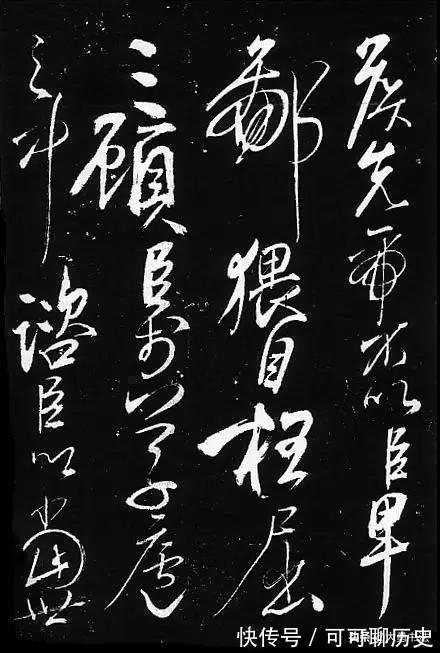 侯先帝不以臣卑
鄙猥自枉屈
三顧臣於草廬
之中諮臣以當世
快传号 / 可可聊历史